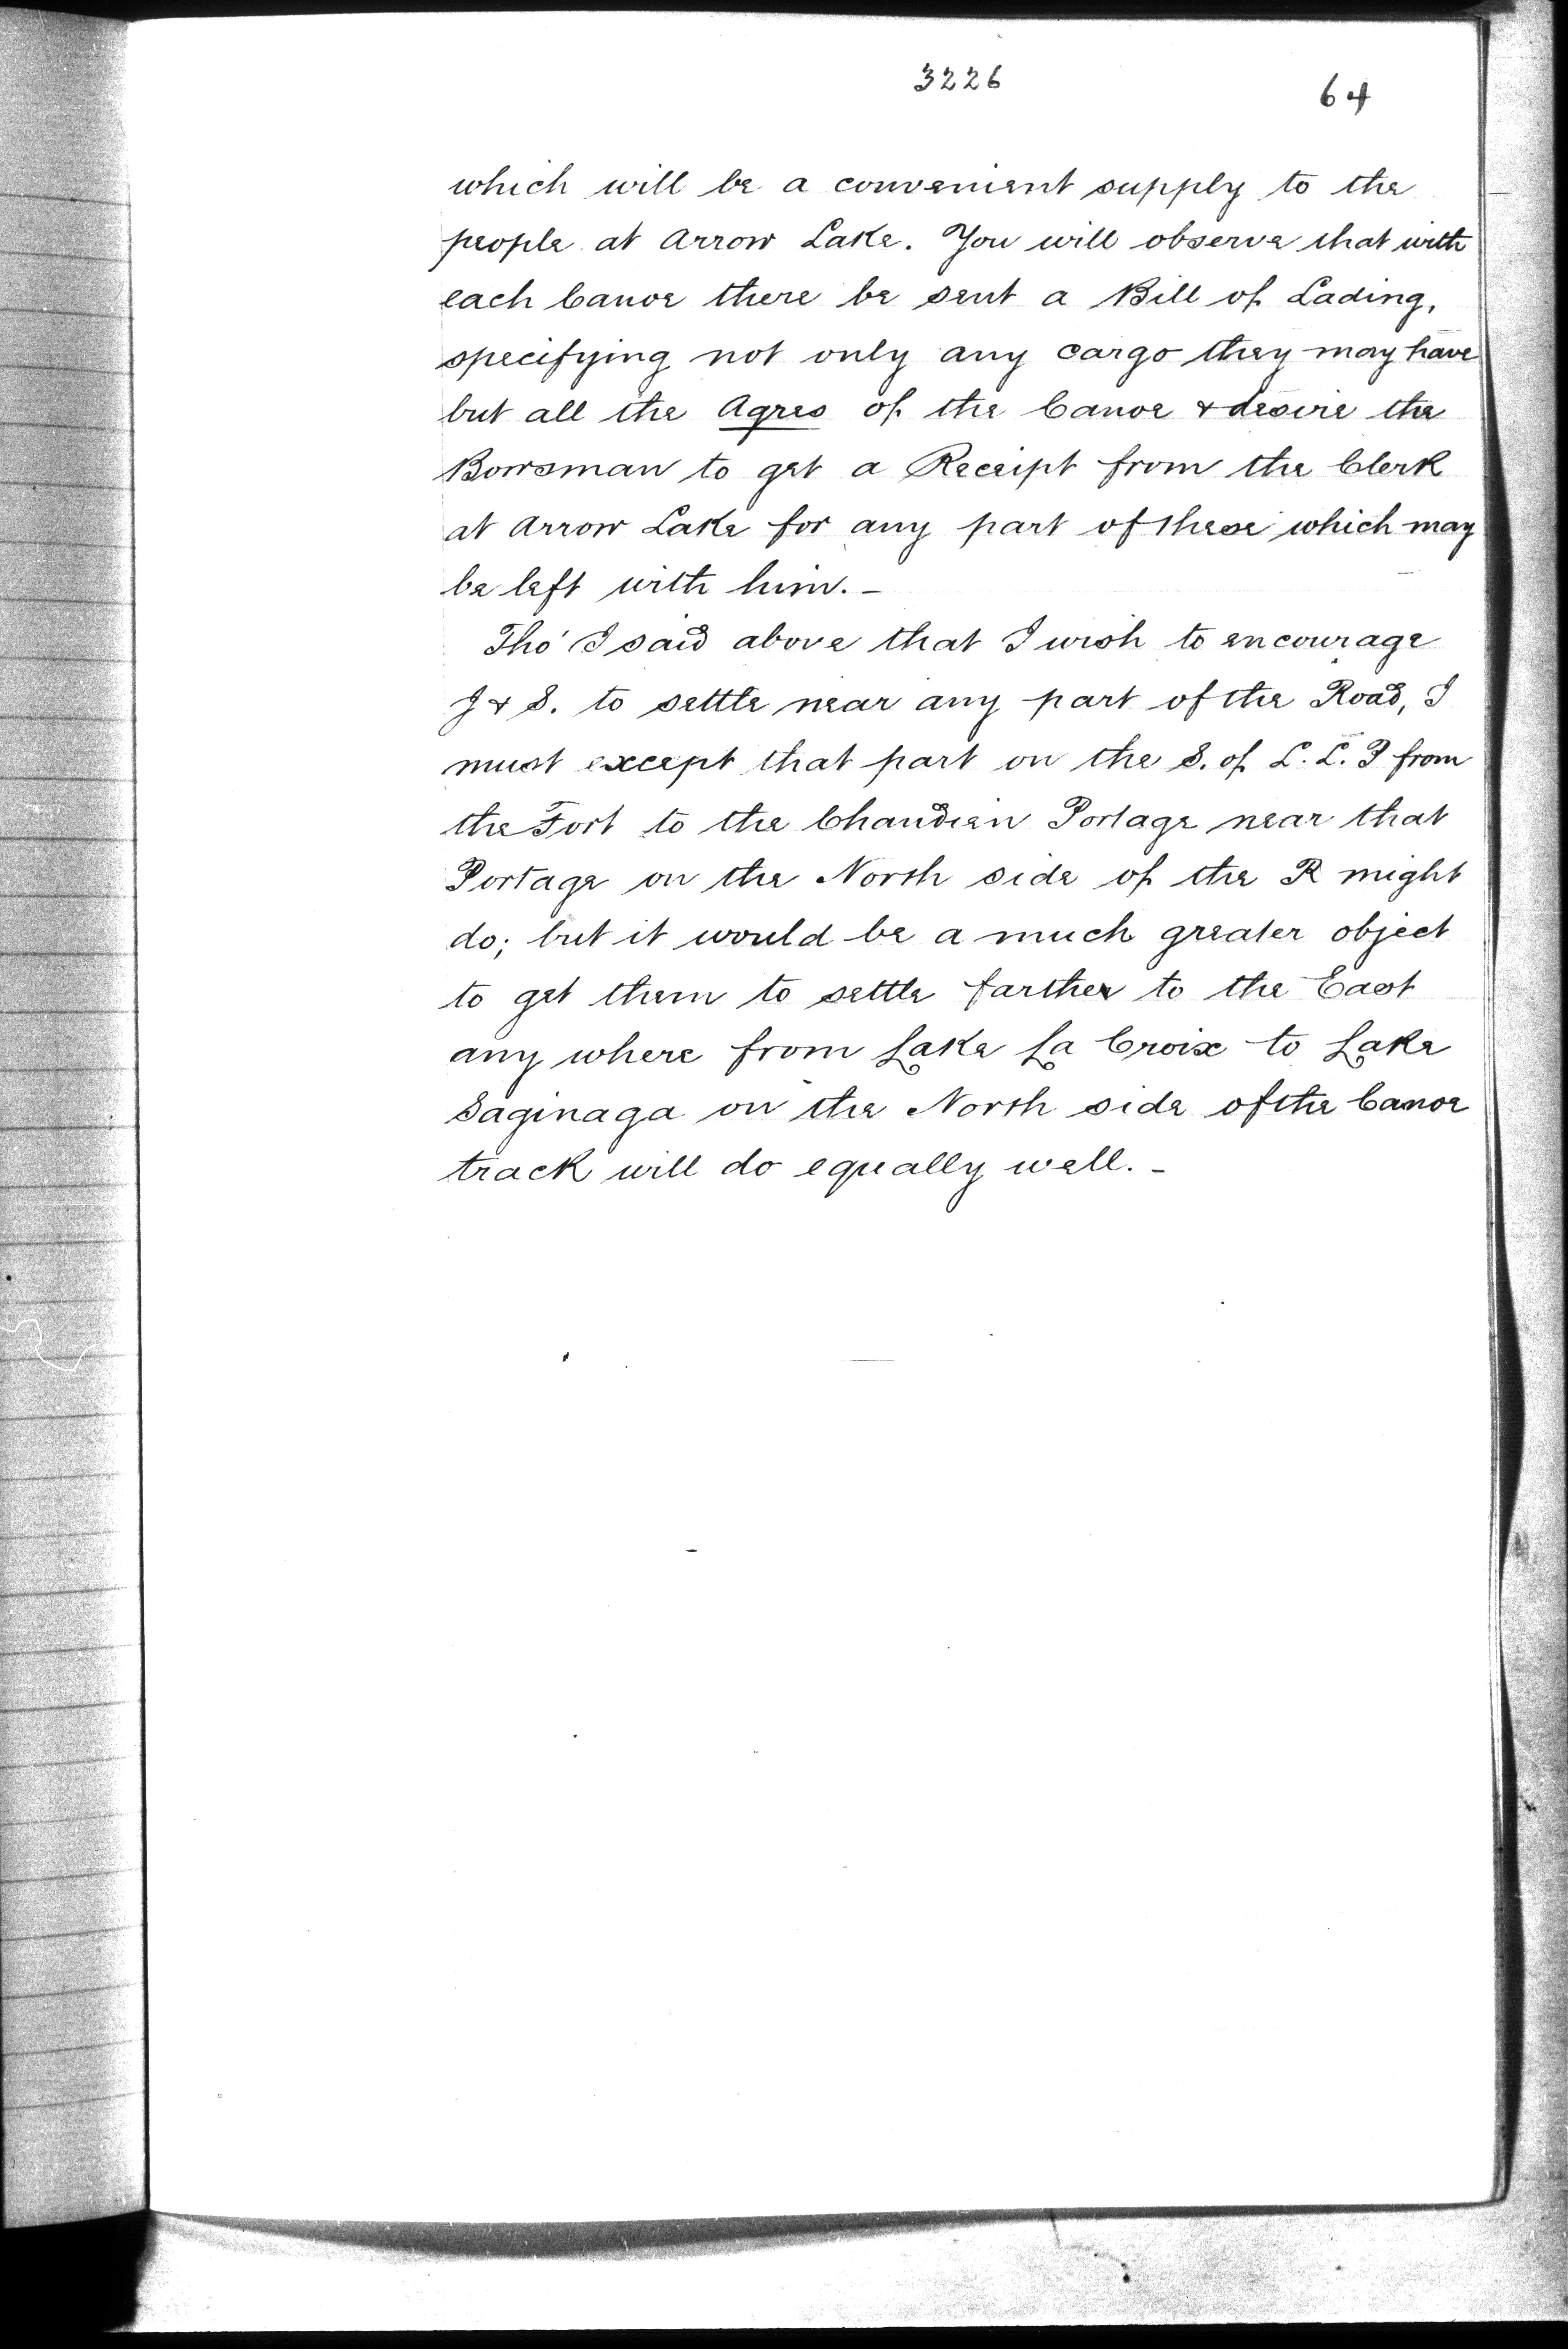 3226
64
which will be a convenient supply to the
people at Arrow Lake. You will observe that with
each Canoe there be sent a Bill of Lading,
specifying not only any cargo they may have
but all the Agres of the Canoe & desire the
Bowsman to get a Receipt from the Clerk
at Arrow Lake for any part of these which may
be left with him. –
Tho' I said above that I wish to encourage
J & S. to settle near any part of the Road, I
must except that part on the S. of L. L. P from
the Fort to the Chaudien Portage near that
Portage on the North side of the R might
do; but it would be a much greater object
to get them to settle farther to the East
any where from Lake La Croix to Lake
Saginaga on the North side of the Canoe
track will do equally well. –